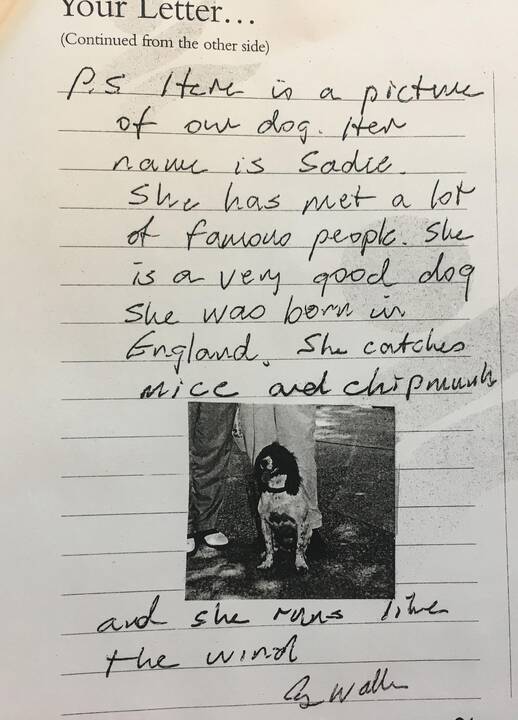 Your Letter...
(Continued from the other side)
P.S Here is a picture
of our dog. Her
name is Sadie.
She has met a lot
of famous people. She
is a very good dog
She was born in
England. She catches
mice and chipmunks
and she runs like
the wind
Walker